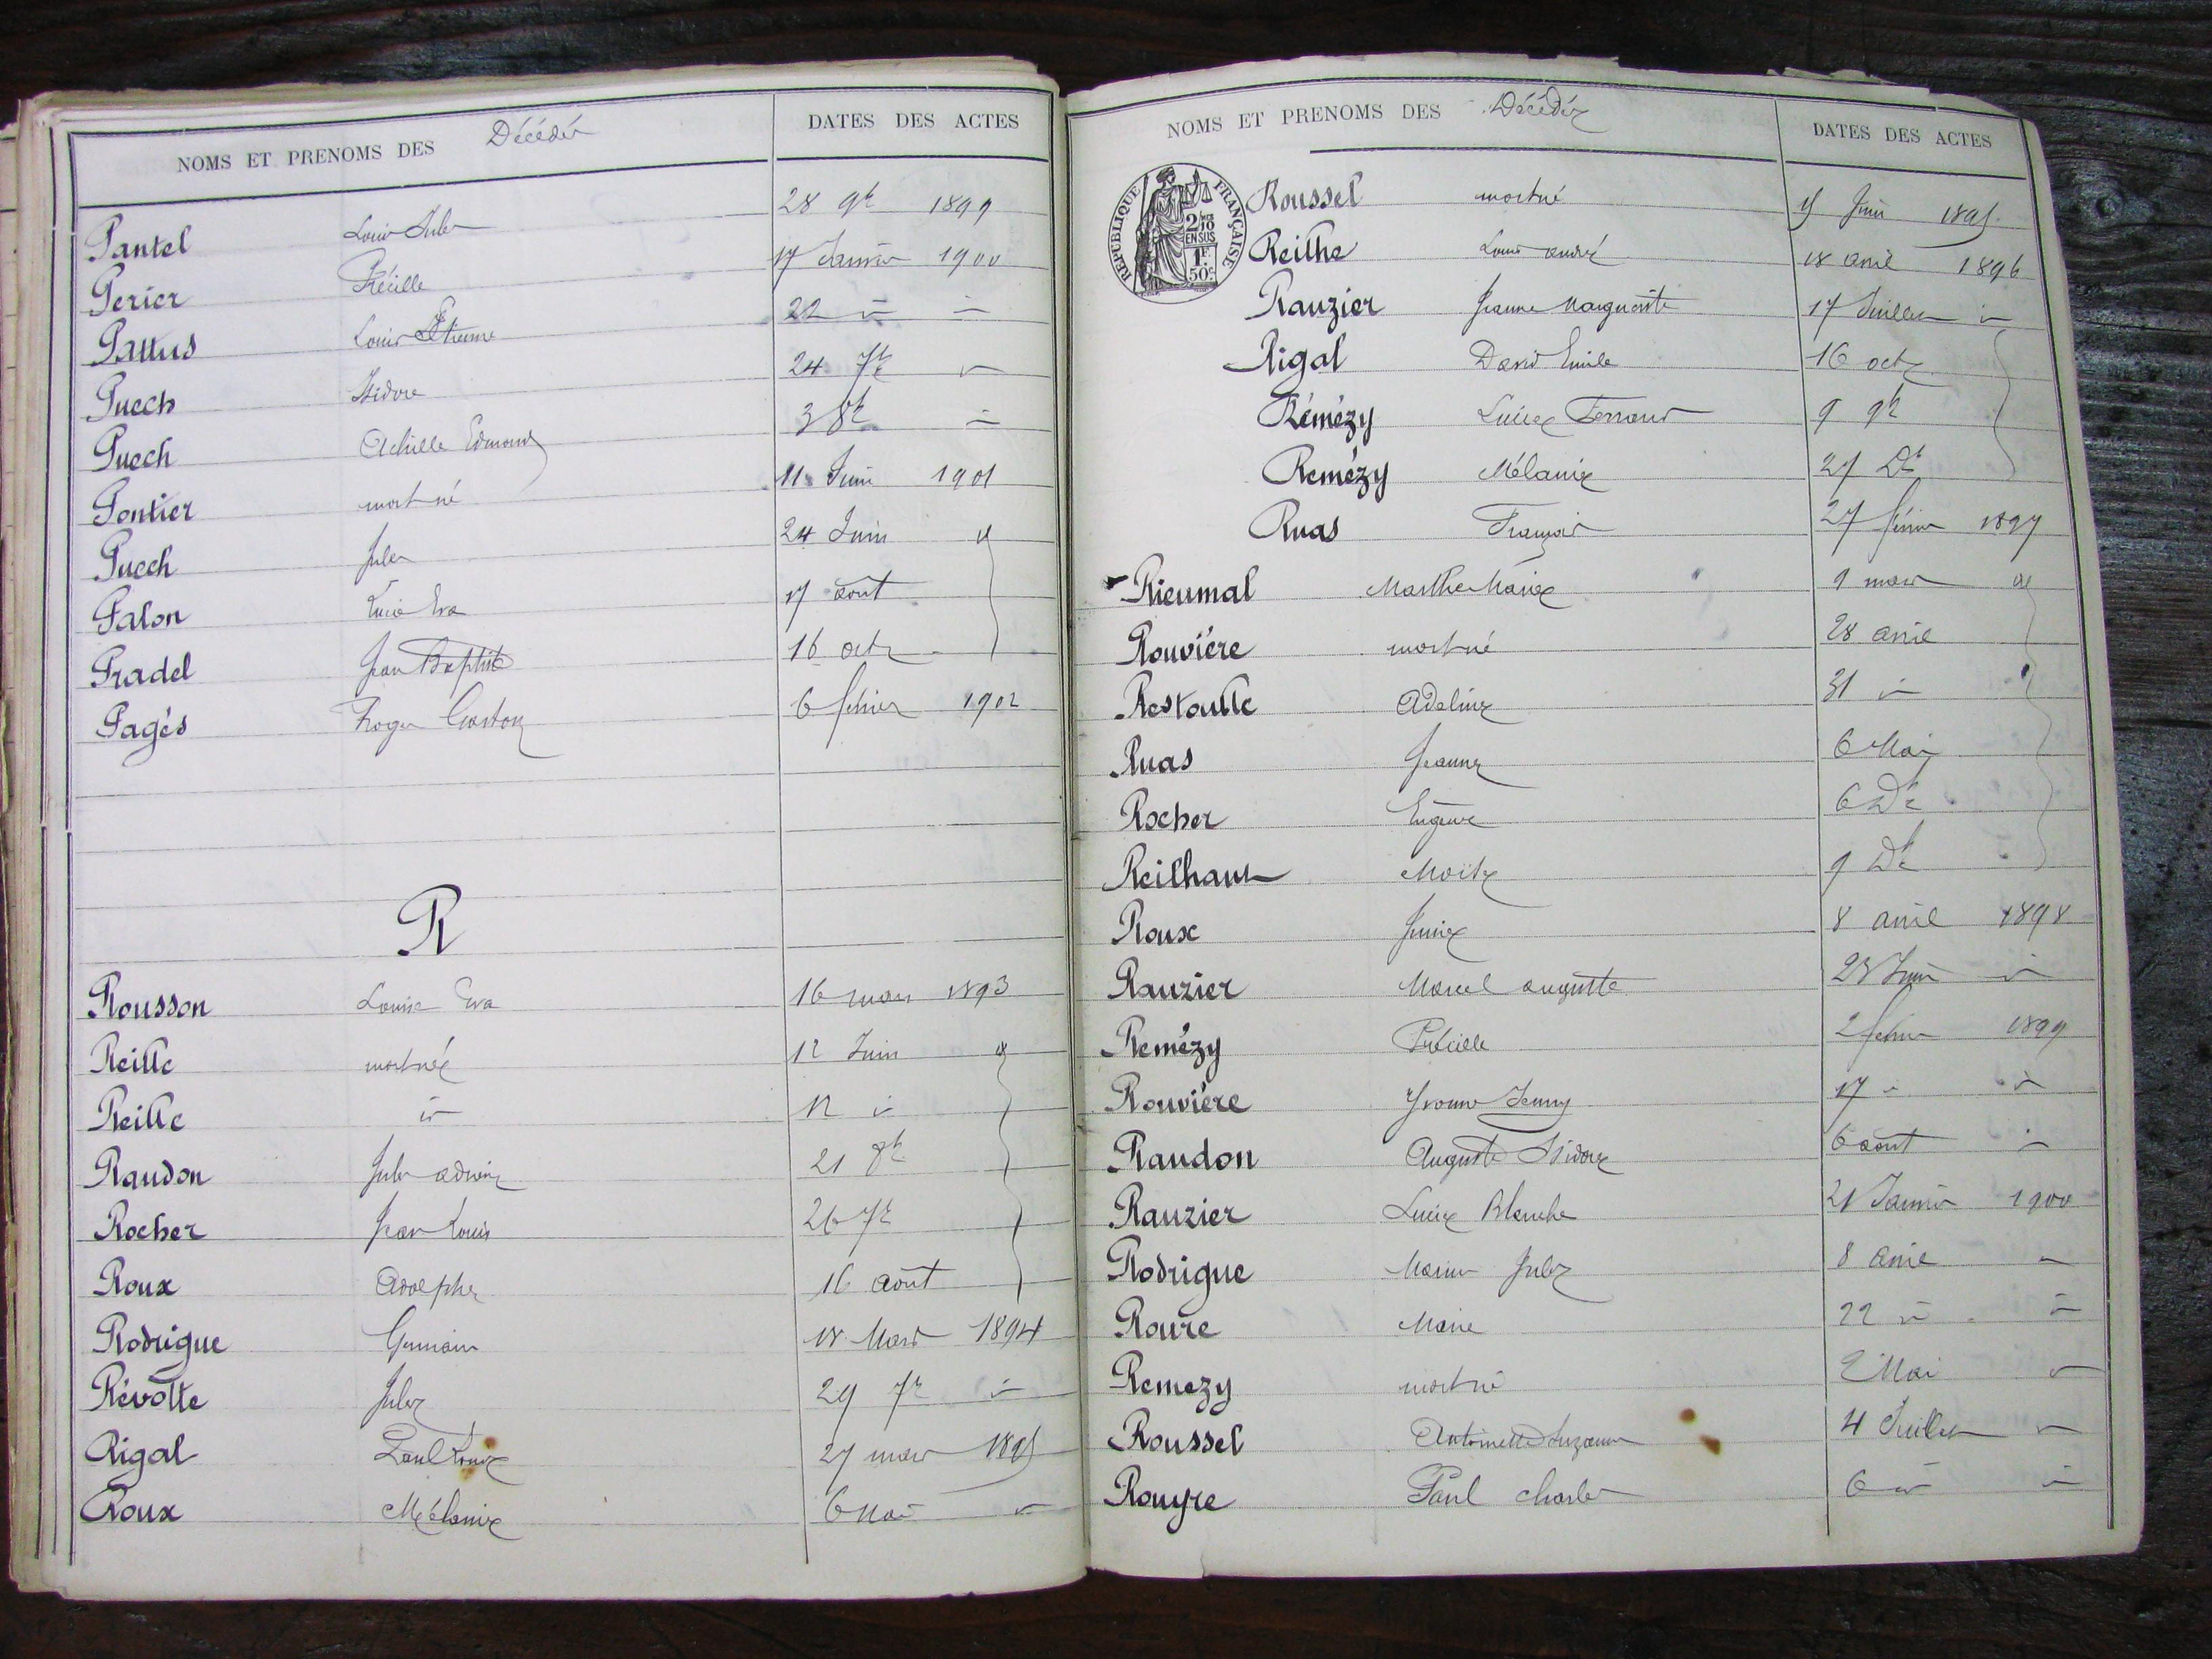 NOMS ET PRENOMS DES Décédés DATES DES ACTES
Pantel Louis Jules 28 9bre 1899
Perier 17 Janvier 1900
Pattus Louis Etienne 22 " "
Puech Isidore 24 7bre "
Puech Achille Edmond 3 8bre "
Pontier mort né 11 Juin 1901
Puech Jules 24 Juin "
Palon Lucie Eva 17 août
Pradel Jean Baptiste 16 octe
Pagès Roger Gaston 6 février 1902
R
Rousson Louise Eva 16 mars 1893
Reille mortnée 12 Juin "
Reille " 12 "
Raudon Jules 21 8bre
Rocher Jean Louis 26 7bre
Roux Adolphe 16 août
Rodrigue Germain 18 Mars 1894
Révolte Jules 29 7bre "
Rigal Paul Louis 27 mars 1895
Roux Mélanie 6 Mai "
NOMS ET PRENOMS DES Décédés DATES DES ACTES
REPUBLIQUE FRANÇAISE
2/10 EN SUS
1F. 50c
Roussel mortné Juin 1895
Reilhe Louis André 18 avril 1896
Rauzier Jeanne Marguerite 17 Juillet "
Rigal David Emile 16 octe
Rémézy Fernand 9 9bre
Remézy Mélanie 27 Dbre
Ruas François 27 février 1897
Rieumal Marthe Marie 9 mars "
Rouvière mortné 28 avril
Restoulle Adeline 31 "
Ruas Jeanne 6 Mai
Rocher Eugène 6 Dbre
Reilhan 9 Dbre
Roux 8 avril 1898
Rauzier Marcel auguste Juin "
Remézy 2 février 1899
Rouvière Yvonne Jenny 17 " "
Raudon Auguste Isidore 6 août "
Rauzier Lucie Blanche 21 Janvier 1900
Rodrigue Marius Jules 8 avril "
Roure Marie 22 " "
Remezy mortné 2 Mai "
Roussel Antoinette Suzanne 4 Juillet "
Rouyre Paul Charles 6 " "